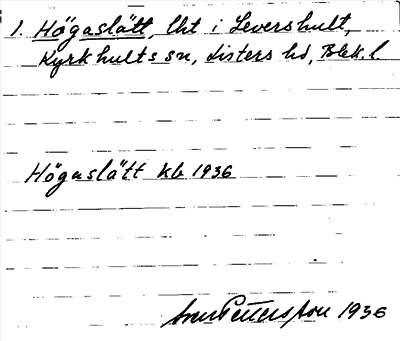 1. Högaslätt, lht i Levershult,
Kyrkhults sn, Listers hd, Blek. l.
Högaslätt kb 1936
Pettersson 1936